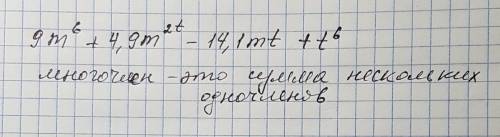 9m⁶ + 4,9m²ᵗ - 14,1mt + t⁶
многочлен - это сумма нескольких
одночленов